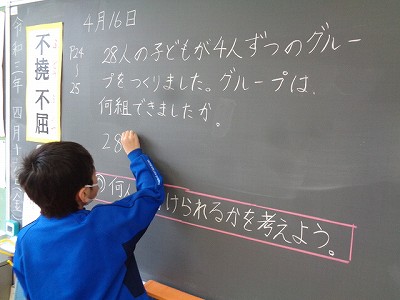 4月16日
不撓不屈
P24
〜
25
28人の子どもが4人ずつのグルー
プをつくりました。グループは、
何組できましたか。
28
何人
けられるかを考えよう。
令和三年 四月十